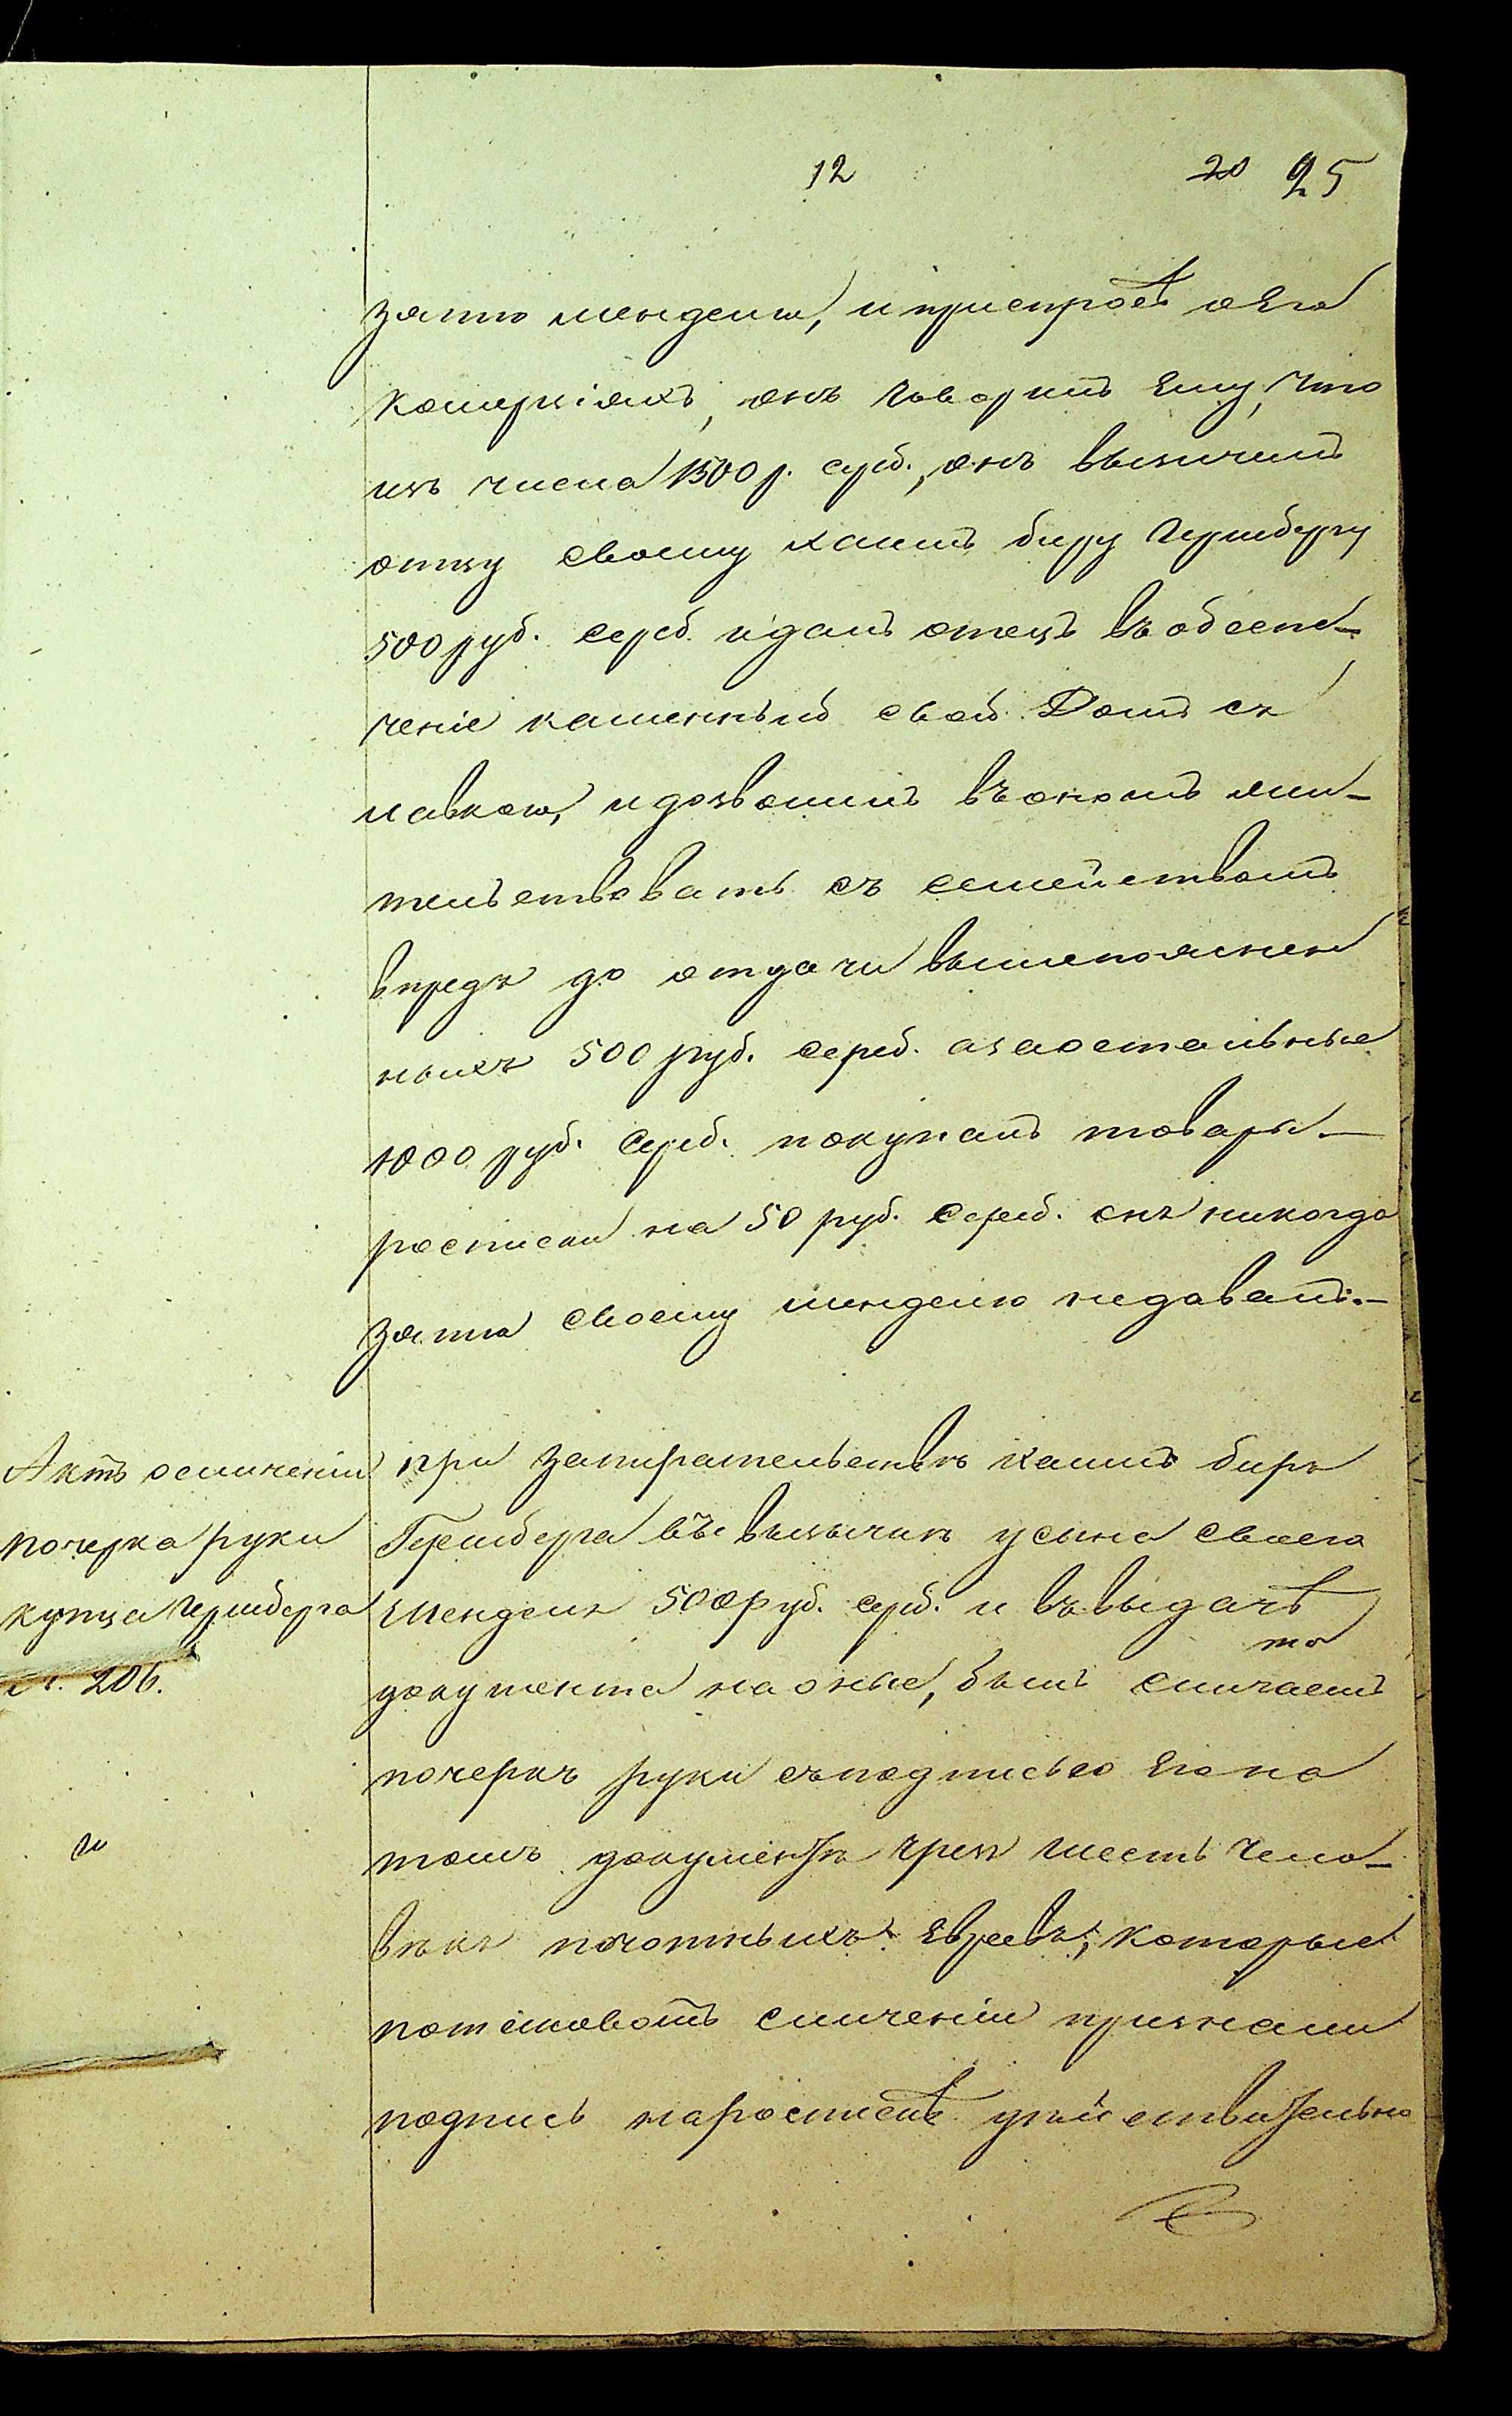 12 20 25
зятю менделю, и приспросѣ о Его
комерціяхъ, онъ говоритъ Ему, что
изъ числа 1500 р. сереб., онъ вызычилъ
отцу своему хаимъ биру Гершбергу
500 руб. сереб. и далъ отецъ въ обеспе-
ченіе каменный свой Домъ съ
лавкою, и дозволилъ въ ономъ жи-
тельствовать съ семействомъ
впредъ до отдачи вышепояснен
ныхъ 500 руб. сереб. а за остальные
1000 руб. сереб. покупалъ товары.—
росписки на 50 руб. сереб. онъ никогда
зятю своему менделю недавалъ.—
Актъ осличеніи
почерка руки
купца Гершберга
л. 206.
при запирательствѣ хаимъ биръ
Гершберга въ вызычкѣ у сына своего
Менделя 500 руб. сереб. и въ выдачѣ
документа на оные, былъ сличаемъ
то
почеркъ руки съ подписью Его на
томъ документѣ чрезъ шесть чело-
вѣкъ почотныхъ Евреевъ, которые
по таковомъ сличеніи признали
подпись на роспискѣ дѣйствительно